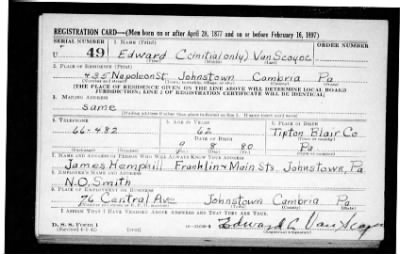 REGISTRATION CARD—(Men born on or after April 28, 1877 and on or before February 16, 1897)
SERIAL NUMBER 1. NAME (Print) ORDER NUMBER
U 49 Edward C (initial only) Van Scoyoc
(First) (Middle) (Last)
2. PLACE OF RESIDENCE (Print)
435 Napoleon St. Johnstown Cambria Pa
(Number and street) (Town, township, village, or city) (County) (State)
[THE PLACE OF RESIDENCE GIVEN ON THE LINE ABOVE WILL DETERMINE LOCAL BOARD
JURISDICTION; LINE 2 OF REGISTRATION CERTIFICATE WILL BE IDENTICAL]
3. MAILING ADDRESS
same
[Mailing address if other than place indicated on line 2. If same insert word same]
4. TELEPHONE 5. AGE IN YEARS 6. PLACE OF BIRTH
66-482 62 Tipton Blair Co.
DATE OF BIRTH (Town or county)
9 8 80 Pa
(Mo.) (Day) (Yr.) (State or country)
7. NAME AND ADDRESS OF PERSON WHO WILL ALWAYS KNOW YOUR ADDRESS
James Hemphill Franklin & Main Sts. Johnstown, Pa
8. EMPLOYER'S NAME AND ADDRESS
N.O. Smith
9. PLACE OF EMPLOYMENT OR BUSINESS
76 Central Ave Johnstown Cambria Pa
(Number and street or R. F. D. number) (Town) (County) (State)
I AFFIRM THAT I HAVE VERIFIED ABOVE ANSWERS AND THAT THEY ARE TRUE.
D. S. S. Form 1
(Revised 4-1-42) (over) Edward C Van Scoyoc